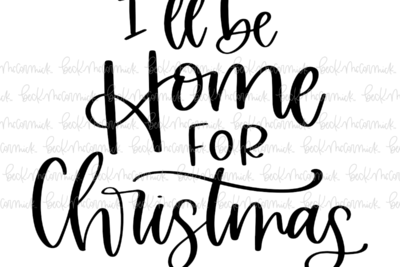 I'll be
Home
FOR
Christmas